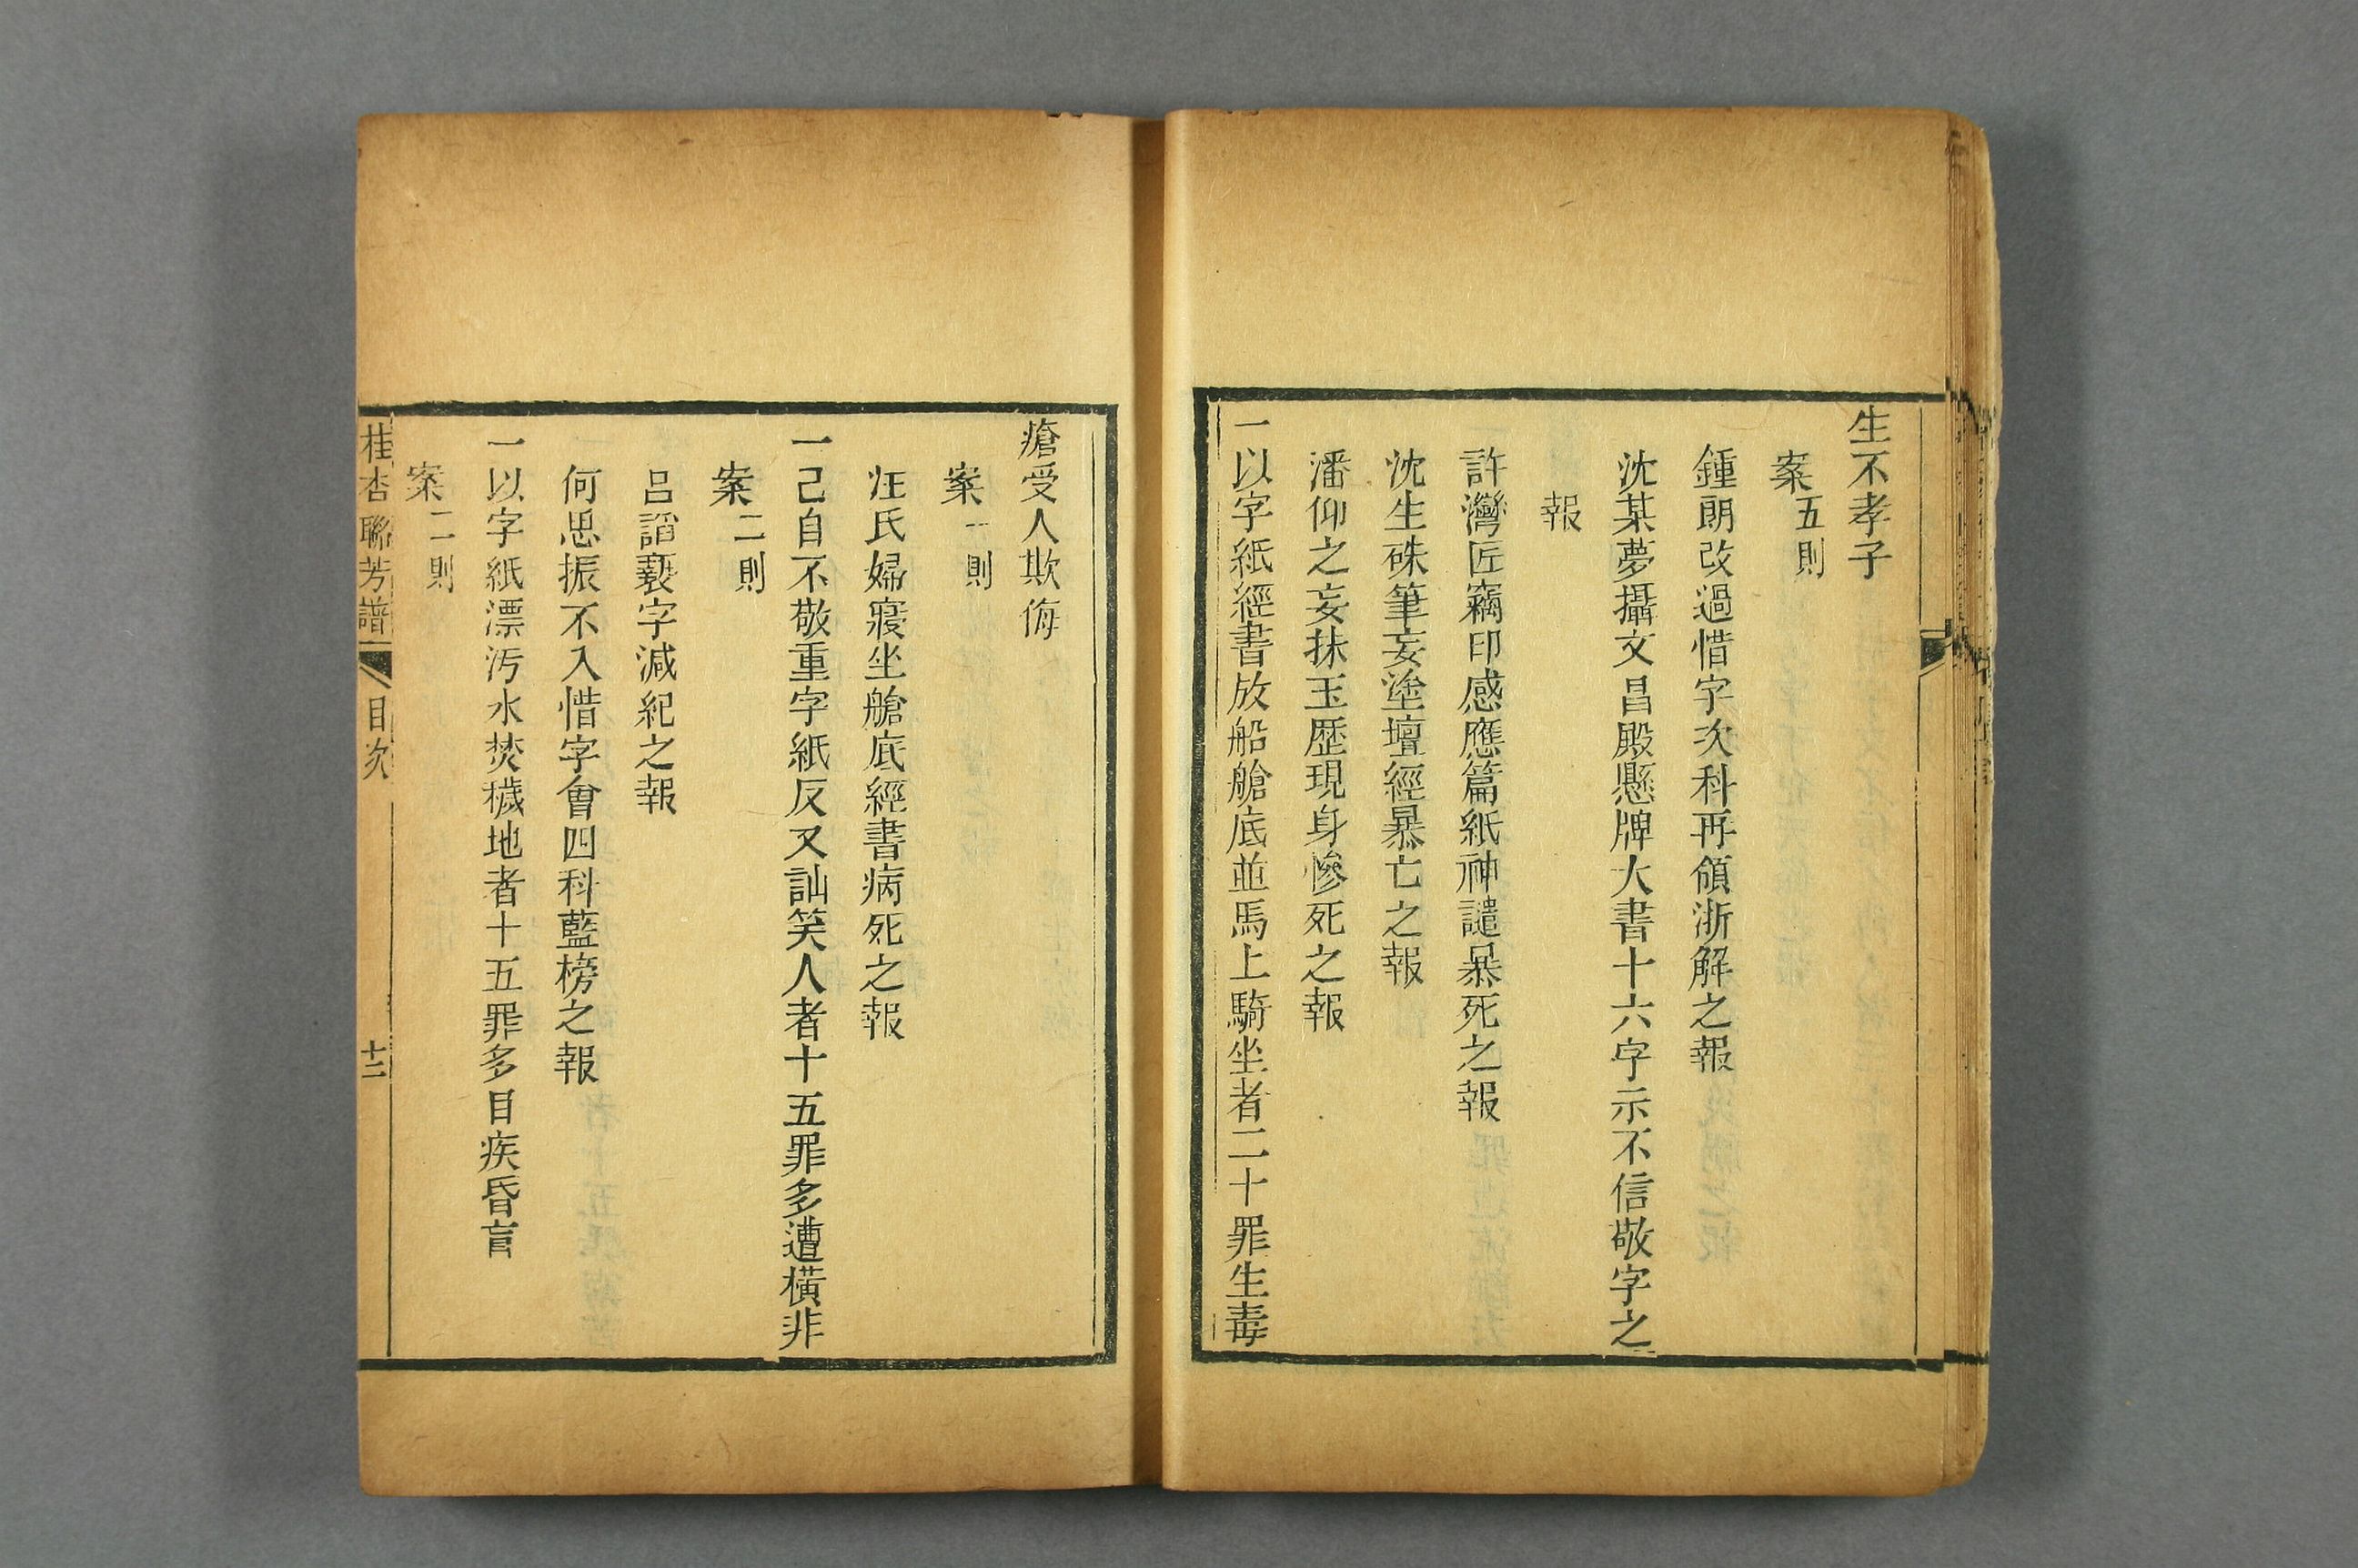 生不孝子
案五則
鍾朗改過惜字次科再領浙解之報
沈某夢攝文昌殿懸牌大書十六字示不信敬字之
報
許灣匠竊印感應篇紙神譴暴死之報
沈生硃筆妄塗壇經暴亡之報
潘仰之妄抹玉歷現身慘死之報
一以字紙經書放船艙底並馬上騎坐者二十罪生毒
瘡受人欺侮
案一則
汪氏婦寢坐艙底經書病死之報
一己自不敬重字紙反又訕笑人者十五罪多遭橫非
案二則
呂謟褻字減紀之報
何思振不入惜字會四科藍榜之報
一以字紙漂汚水焚穢地者十五罪多目疾昏盲
案二則
桂杏聯芳譜 目次 十二